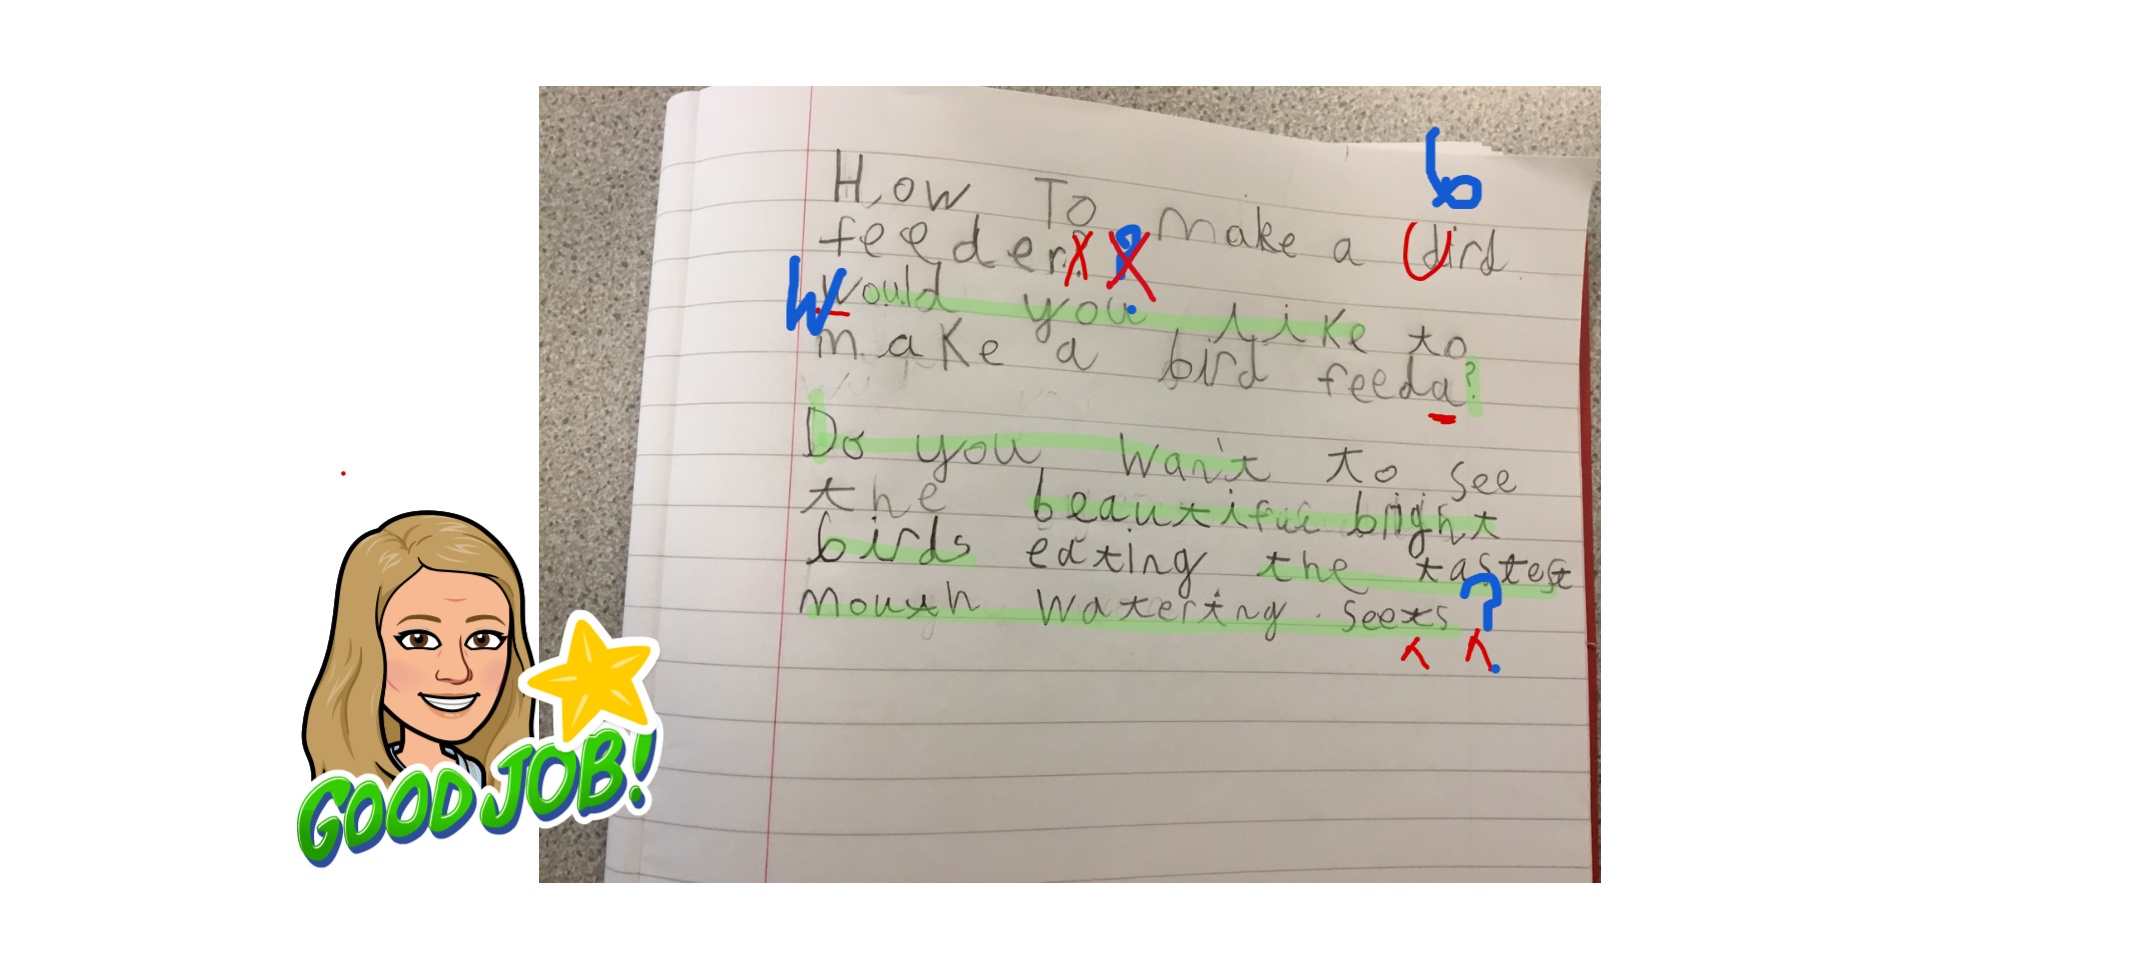 b
How To make a dird
feeder? ?
W
would you like to
make a bird feeda?
Do you wan't to see
the bright
birds eating the tastest
mouth watering seets ?
GOOD JOB!